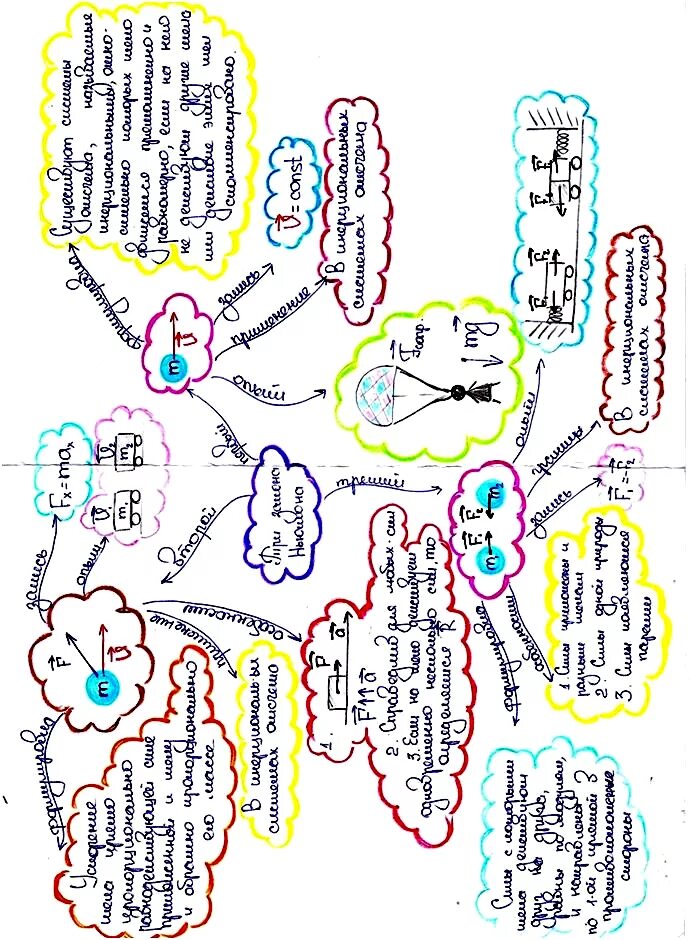 Три закона
Ньютона
первый
m
v⃗
формулировка
Существуют системы
отсчета, называемые
инерциональными, отно-
сительно которых тело
движется прямолинейно и
равномерно, если на него
не действуют другие тела
или действие этих тел
скомпенсировано.
запись
v⃗ = const
применение
В инерциональных
системах отсчета
опыт
mg⃗
второй
F⃗
m
v⃗
формулировка
Ускорение
тела прямо
пропорционально
равнодействующей силе
приложенной к телу
и обратно пропорционально
его массе
запись
Fx = max
опыт
m₁
m₂
применение
В инерциональных
системах отсчета
особенности
1.
F⃗
a⃗
F⃗ ↑↑ a⃗
2. Справедлив для любых сил
3. Если на тело действует
одновременно несколько сил, то
определяется R⃗
третий
m₁
F⃗₁
F⃗₂
m₂
формулировка
Силы с которыми
тела действуют
друг на друга,
равны по модулям,
и направлены
по 1-ой прямой в
противоположные
стороны
особенности
1. Силы приложены к
разным телам
2. Силы одной природы
3. Силы появляются
парами
запись
F⃗₁ = -F⃗₂
границы
В инерциональных
системах отсчета
опыт